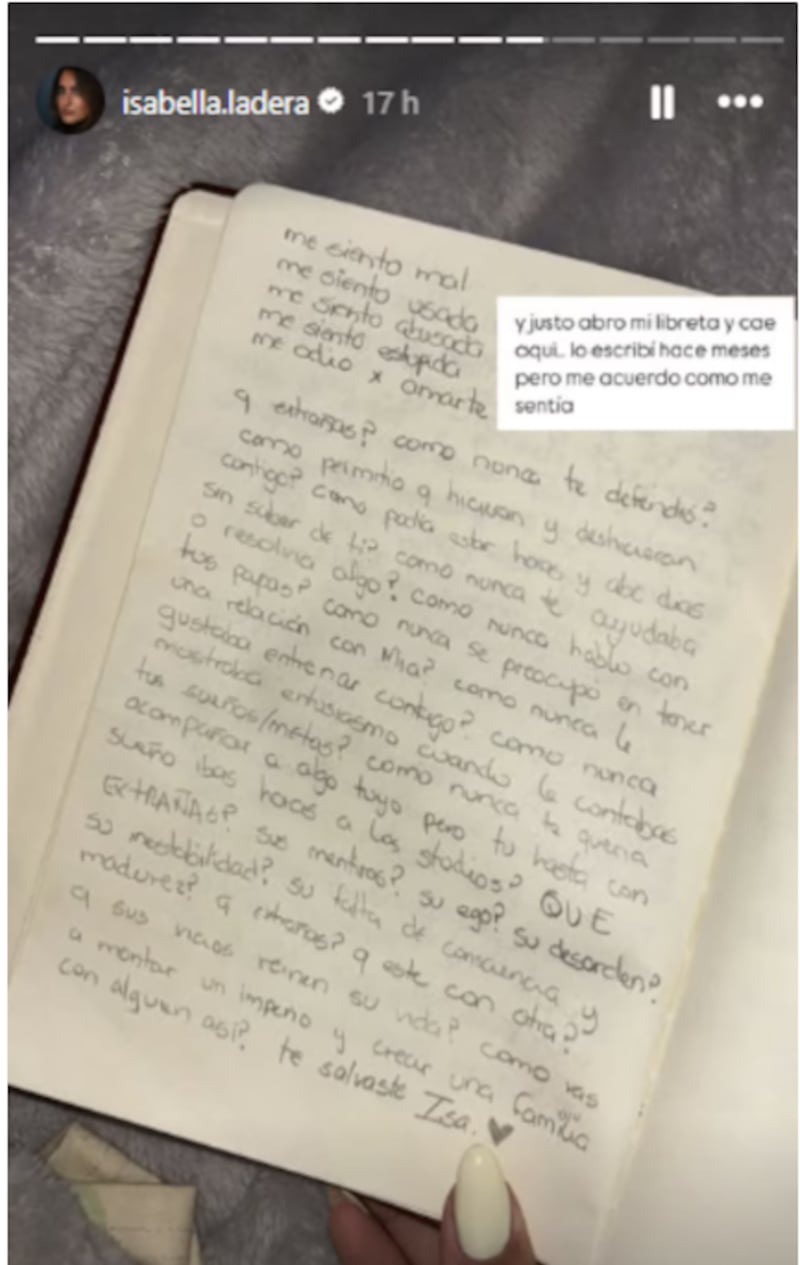 isabella.ladera 17 h
me siento mal
me siento usada
me siento abusada
me siento estupida
me odio x amarte
y justo abro mi libreta y cae
aqui.. lo escribí hace meses
pero me acuerdo como me
sentía
q extrañas? como nunca te defendió?
como permitio q hicieran y deshicieran
contigo? como podia estar horas y abc dias
sin saber de ti? como nunca te ayudaba
o resolvia algo? como nunca hablo con
tus papas? como nunca se preocupó en tener
una relación con Mia? como nunca le
gustaba entrenar contigo? como nunca
mostraba entusiasmo cuando le contabas
tus sueños/metas? como nunca te queria
acompañar a algo tuyo pero tu hasta con
sueño ibas horas a los studios? QUE
EXTRAÑAS? sus mentiras? su ego? su desorden?
su inestabilidad? su falta de consciencia y
madurez? q extrañas? q este con otra?
q sus vicios reinen su vida? como vas
a montar un imperio y crear una familia
con alguien asi? te salvaste Isa.